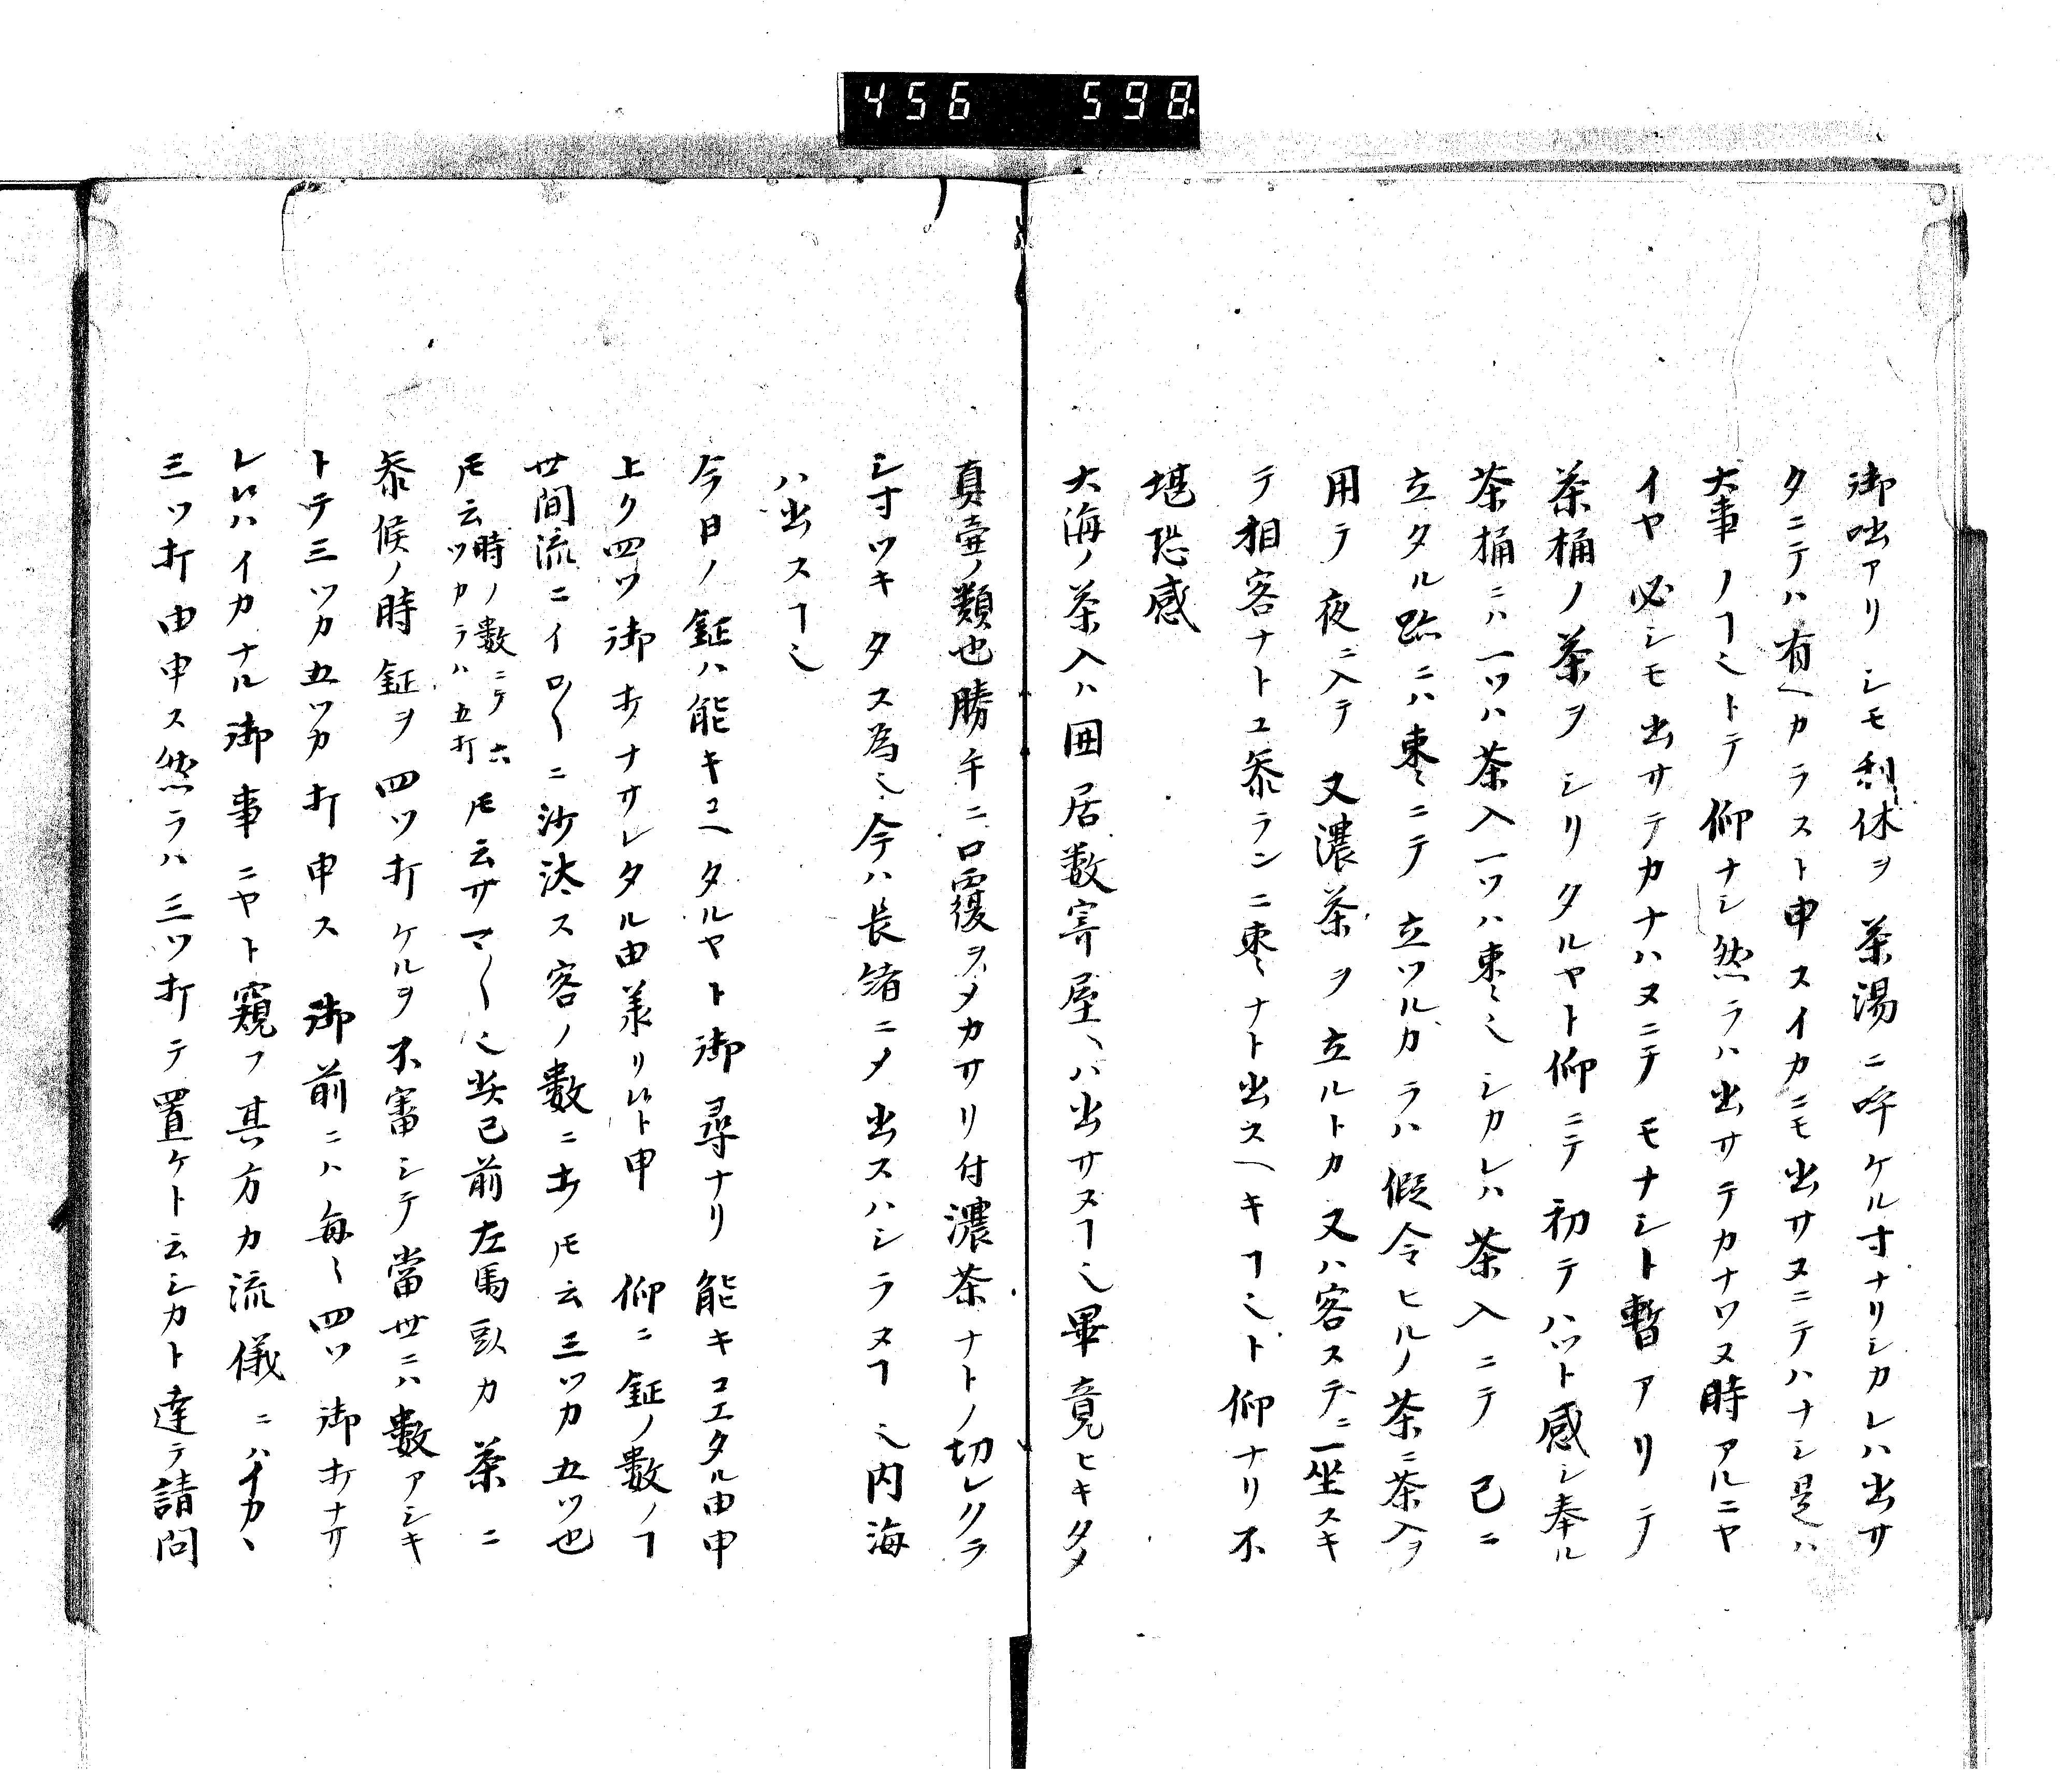 456 598.
御咄アリシモ利休ヲ茶湯ニ呼ケル寸ナリシカレハ出サ
タニテハ有ヘカラスト申スイカニモ出サヌニテハナシ是ハ
大事ノヿ〻トテ仰ナシ然ラハ出サテカナワヌ時アルニヤ
イヤ必シモ出サテカナハヌニテモナシト暫アリテ
茶桶ノ茶ヲシリタルヤト仰ニテ初テハツト感シ奉ル
茶桶ニハ一ツハ茶入一ツハ棗〻シカレハ茶入ニテ已ニ
立タル跡ニハ棗〻ニテ立ツルカラハ假令ヒルノ茶ニ茶入ヲ
用テ夜ニ入テ又濃茶ヲ立ルトカ又ハ客ステニ一座スキ
テ相客ナトユ参ランニ棗〻ナト出スヘキヿ〻ト仰ナリ不
堪恐感
大海ノ茶入ハ囲居数寄屋ヘハ出サヌヿ〻畢竟ヒキタメ
真壷ノ類也勝手ニ口覆ヲメカサリ付濃茶ナトノ切レクラ
シ寸ツキタス為〻今ハ長緒ニメ出スハシラヌヿ〻内海
ハ出スヿ〻
今日ノ鉦ハ能キコヘタルヤト御尋ナリ能キコエタル由申
上ク四ツ御打ナサレタル由羕リ候ト申 仰ニ鉦ノ数ノヿ
世間流ニイロ〱ニ沙汰ス客ノ數ニ打ㇳモ云三ツカ五ツ也
ㇳモ云時ノ數ニテ六ツカラハ五打ㇳモ云サマ〱〻先已前左馬頭カ茶ニ
参候ノ時鉦ヲ四ツ打ケルヲ不審シテ當世ニハ數アシキ
トテ三ツカ五ツカ打申ス御前ニハ毎〱四ツ御打ナサ
レ候ハイカナル御事ニヤト窺フ其方カ流儀ニハイカヽ
三ツ打由申ス然ラハ三ツ打テ置ケト云シカト達テ請問